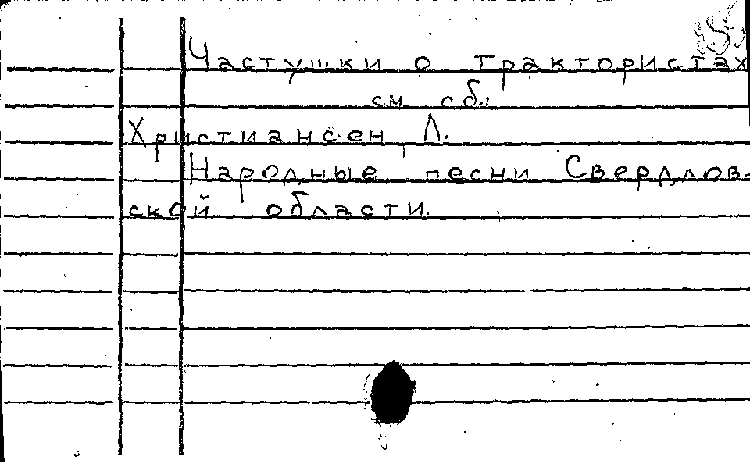 Частушки о трактористах
см. сб.:
Христиансен, Л.
Народные песни Свердлов-
ской области.